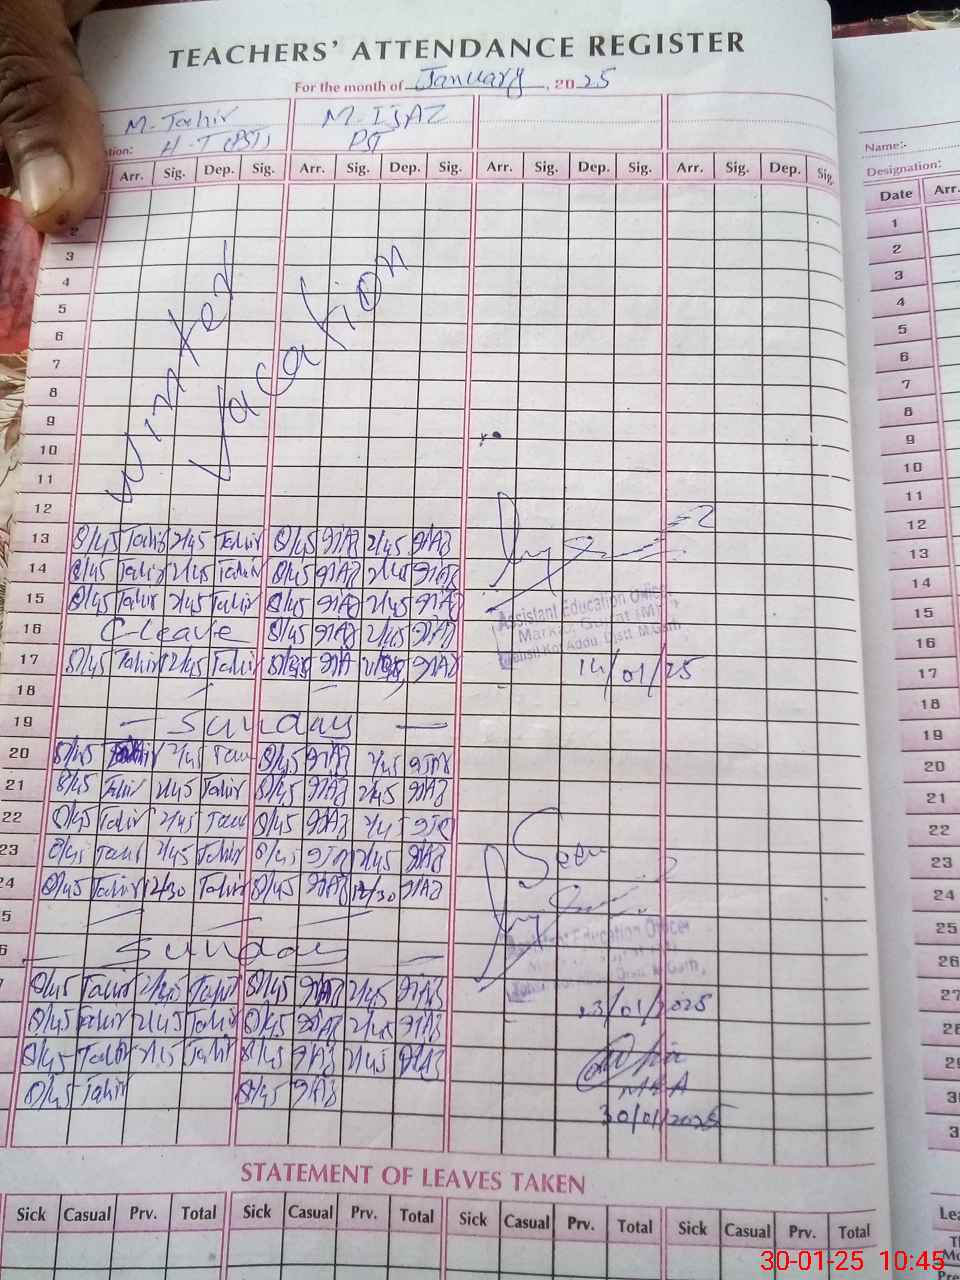 TEACHERS' ATTENDANCE REGISTER
For the month of January, 2025
M. Tahir M. IJAZ
tion: H.T (PST) PST
Name:-
Designation:
Arr. Sig. Dep. Sig. Arr. Sig. Dep. Sig. Arr. Sig. Dep. Sig. Arr. Sig. Dep. Sig. Date Arr.
1
2 2
3 3
4 4
5 5
6 6
7 7
8 8
9 9
10 10
11 11
winter vacation
12 12
13 8/45 Tahir 2/45 Tahir 8/45 IJAZ 2/45 IJAZ 13
14 8/45 Tahir 2/45 Tahir 8/45 IJAZ 2/45 IJAZ 14
15 8/45 Tahir 2/45 Tahir 8/45 IJAZ 2/45 IJAZ 15
Assistant Education Officer
16 C-leave 8/45 IJAZ 2/45 IJAZ 16
Markaz Gujrat (M)
Tehsil Kot Addu, Distt M.Garh
17 8/45 Tahir 2/45 Tahir 8/45 IJAZ 2/45 IJAZ 14/01/25 17
18 18
19 - Sunday - 19
20 8/45 Tahir 2/45 Tahir 8/45 IJAZ 2/45 IJAZ 20
21 8/45 Tahir 2/45 Tahir 8/45 IJAZ 2/45 IJAZ 21
22 8/45 Tahir 2/45 Tahir 8/45 IJAZ 2/45 IJAZ 22
23 8/45 Tahir 2/45 Tahir 8/45 IJAZ 2/45 IJAZ Seen 23
24 8/45 Tahir 12/30 Tahir 8/45 IJAZ 12/30 IJAZ 24
5 25
Assistant Education Officer
6 - Sunday - 26
7 8/45 Tahir 2/45 Tahir 8/45 IJAZ 2/45 IJAZ 23/01/2025 27
8/45 Tahir 2/45 Tahir 8/45 IJAZ 2/45 IJAZ 28
8/45 Tahir 2/45 Tahir 8/45 IJAZ 2/45 IJAZ MEA 29
8/45 Tahir 8/45 IJAZ 30/01/2025
STATEMENT OF LEAVES TAKEN
Sick Casual Prv. Total Sick Casual Prv. Total Sick Casual Prv. Total Sick Casual Prv. Total
30-01-25 10:45